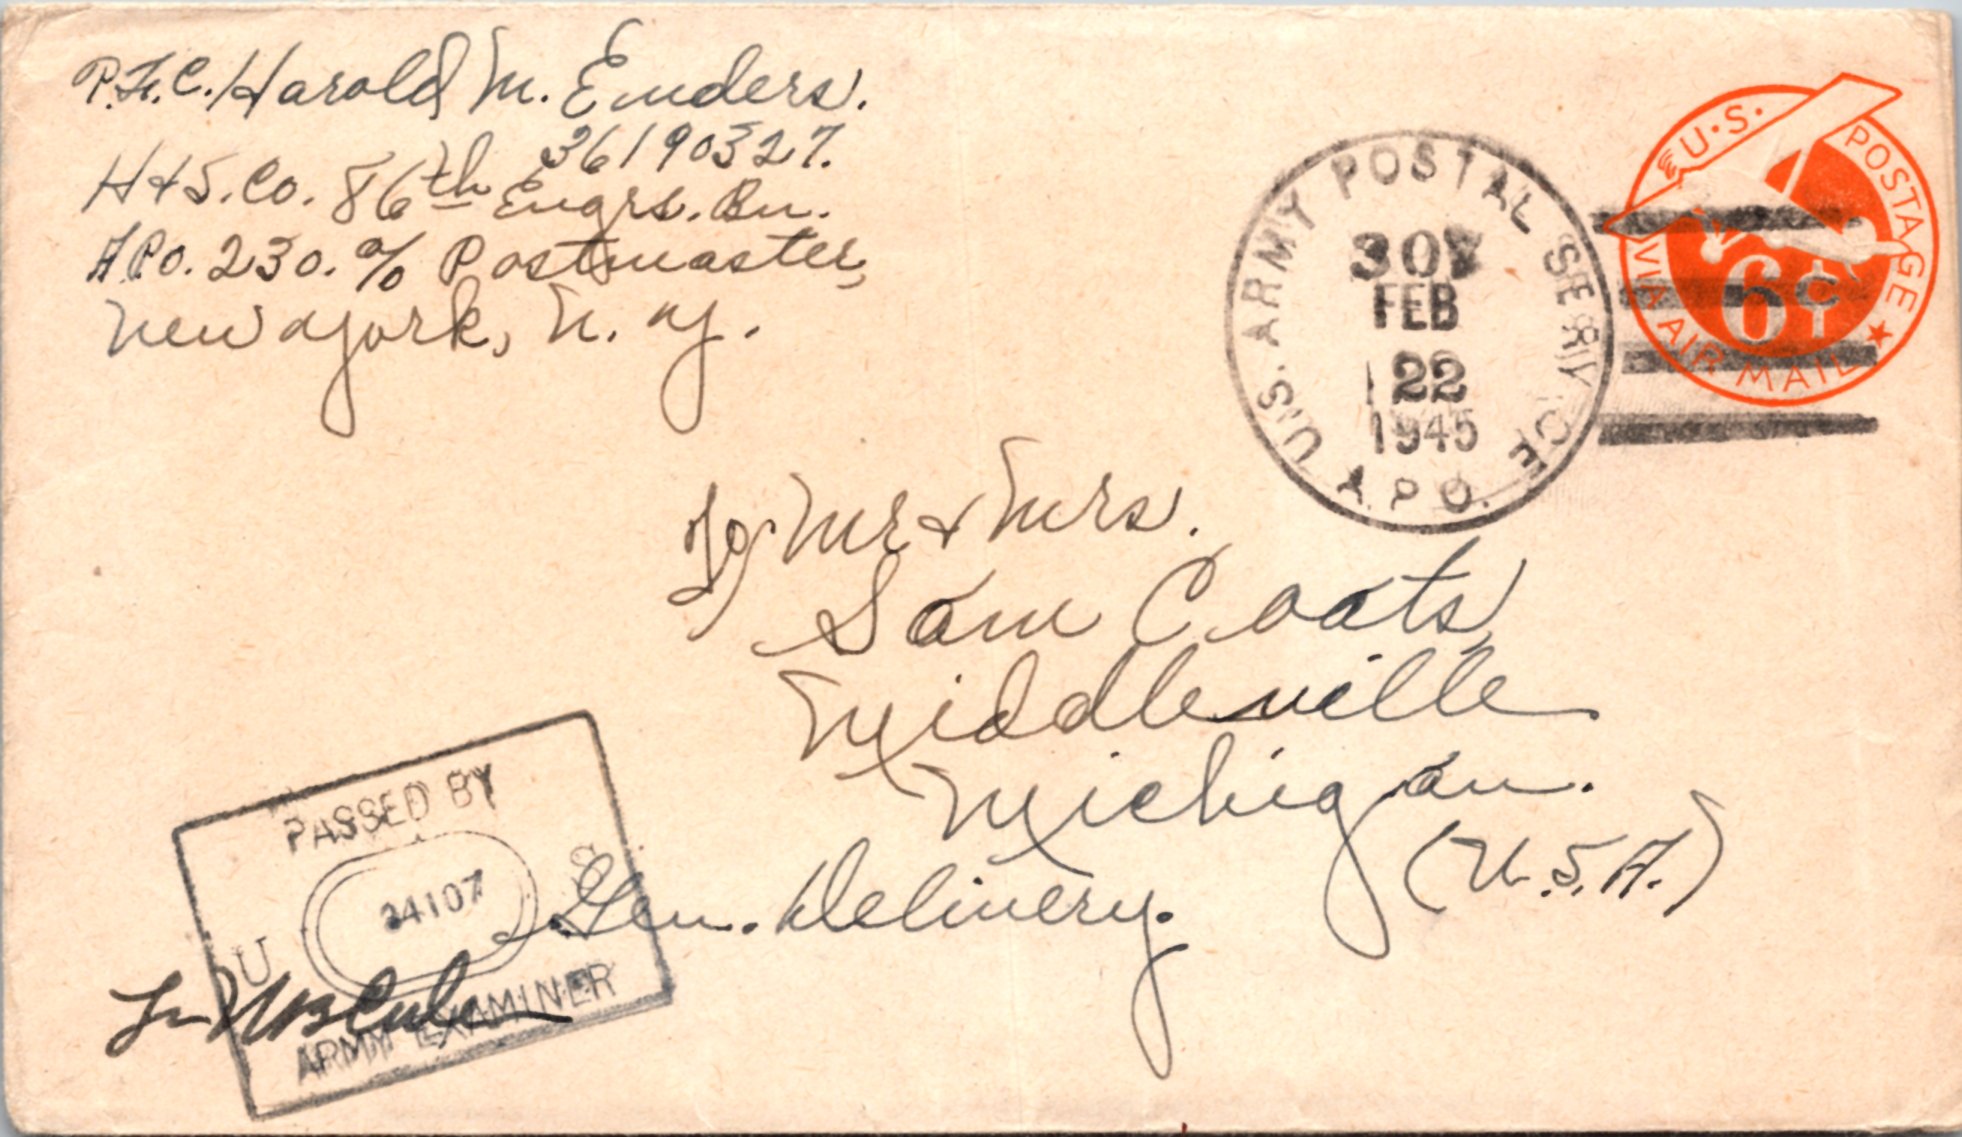 P.F.C. Harold M. Enders.
36190327.
H+S. Co. 86th Engrs. Bn.
A.P.O. 230. c/o Postmaster,
New York, N. Y.
U.S. ARMY POSTAL SERVICE
FEB
22
1945
A.P.O.
U.S. POSTAGE
6¢
VIA AIR MAIL
To Mr & Mrs.
Sam Coats,
Middleville
Michigan.
(U.S.A.)
Gen. Delivery.
PASSED BY
U S
ARMY EXAMINER